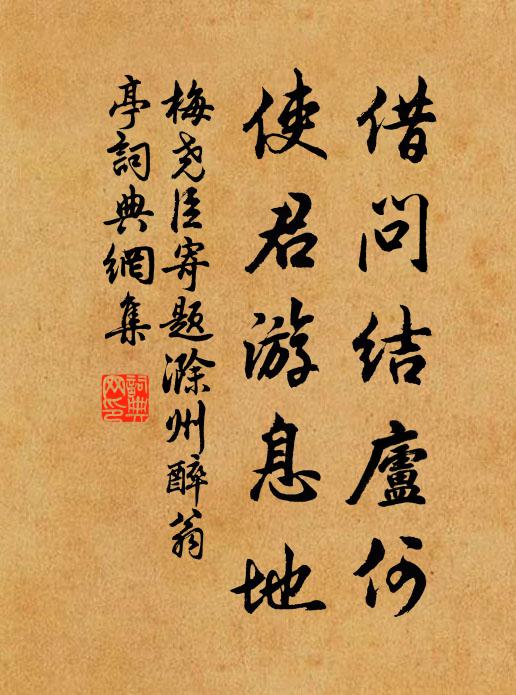 借问结廬何
使君游息地
梅尧臣寄题滁州醉翁
亭詞典網集
詞典网印